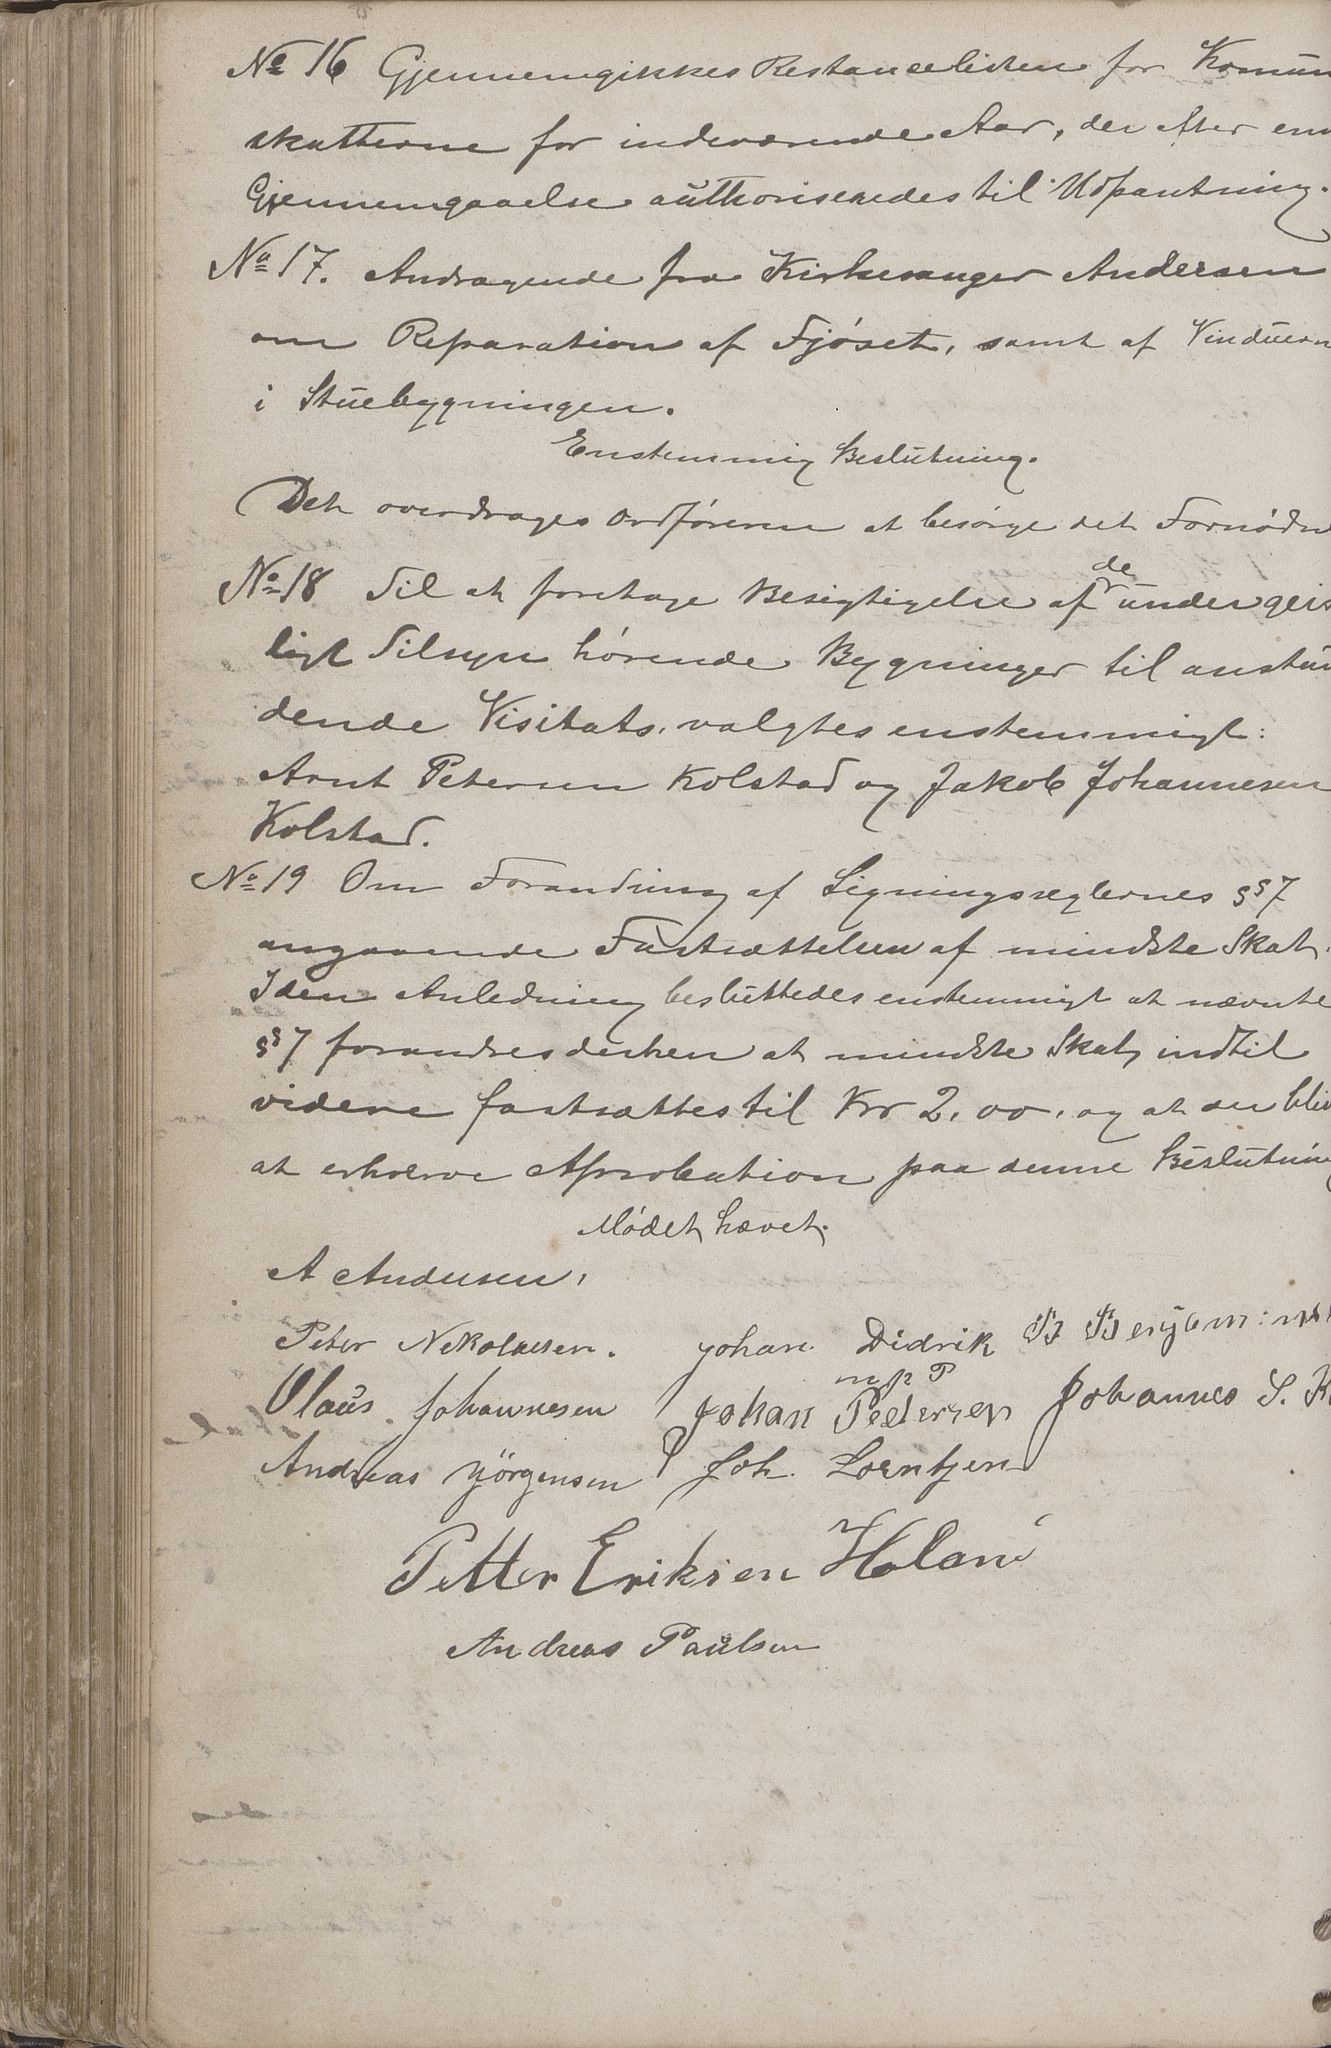 No 16 Gjennemgikkes Restancelisten for Komun
skatterne for indeværende Aar, der efter en
Gjennemgaaelse authoriseredes til Udpantning.
No 17. Andragende fra Kirkesanger Andersen
om Reparation af Fjøset, samt af Vinduern
i Stuebygningen.
Enstemmig Beslutning.
Det overdrages Ordføreren at besørge det Fornødne
No 18 Til at foretage Besigtigelse af de under geis
ligt Tilsyn hørende Bygninger til anstun
dende Visitats, valgtes enstemmigt:
Arnt Petersen Kolstad og Jakob Johannesen
Kolstad.
No 19 Om Forandring af Ligningsreglernes §§ 7
angaaende Fastsættelsen af mindste Skat.
I den Anledning besluttedes enstemmigt at nævnte
§§ 7 forandres derhen at mindste Skat, indtil
videre fastsættes til Kr 2,00, og at der bliv
at erhverve Aprobation paa denne Beslutning
Mødet hævet.
A Andersen,
Peter Nekolaisen. Johan Didrik B Benjamins
m p P
Olaus Johannesen Johan Pedersen Johannes S. K
Andreas Jørgensen Joh. Lorntsen
Petter Eriksen Holand
Andreas Paulsen